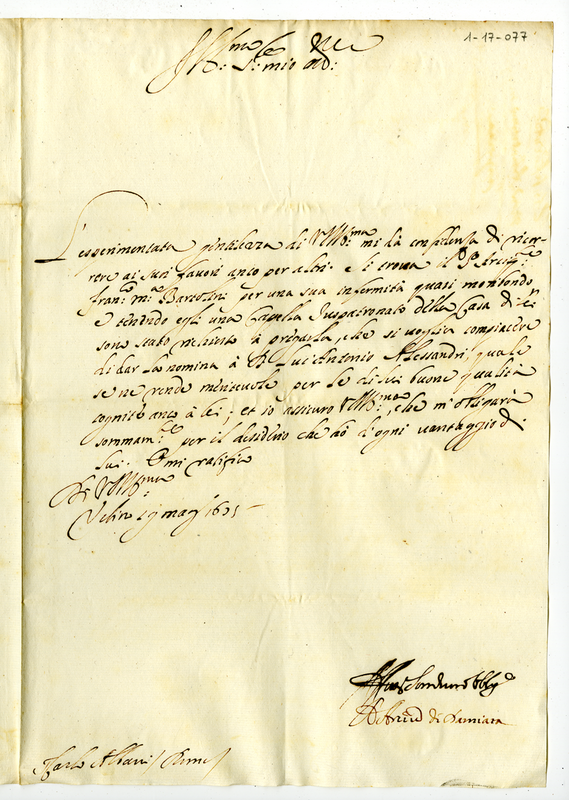 1-17-077
Ill.mo Sig.re
S.r mio Oss.
L'esperimentata gentilezza di V.S.Ill.ma mi dà confidenza di ricor-
rere ai suoi favori anco per altri: e si trova il
Fran.co M.a Bartolini per una sua infermità quasi moribondo
e tenendo egli una Capella Juspatronato della Casa di
sono stato richiesto à pregarla, che si voglia compiacere
di dar la nomina à D. Luc'Antonio Alessandri, quale
se ne rende meritevole per le di lui buone qualità
cognite anco à lei; et io assicuro V.S.Ill.ma, che m'obligarà
sommam.te per il desiderio che hò d'ogni vantaggio di
lui. E mi ratifico
Di V.S.Ill.ma
Urbino 29 mag
di Damiata
Carlo Albani